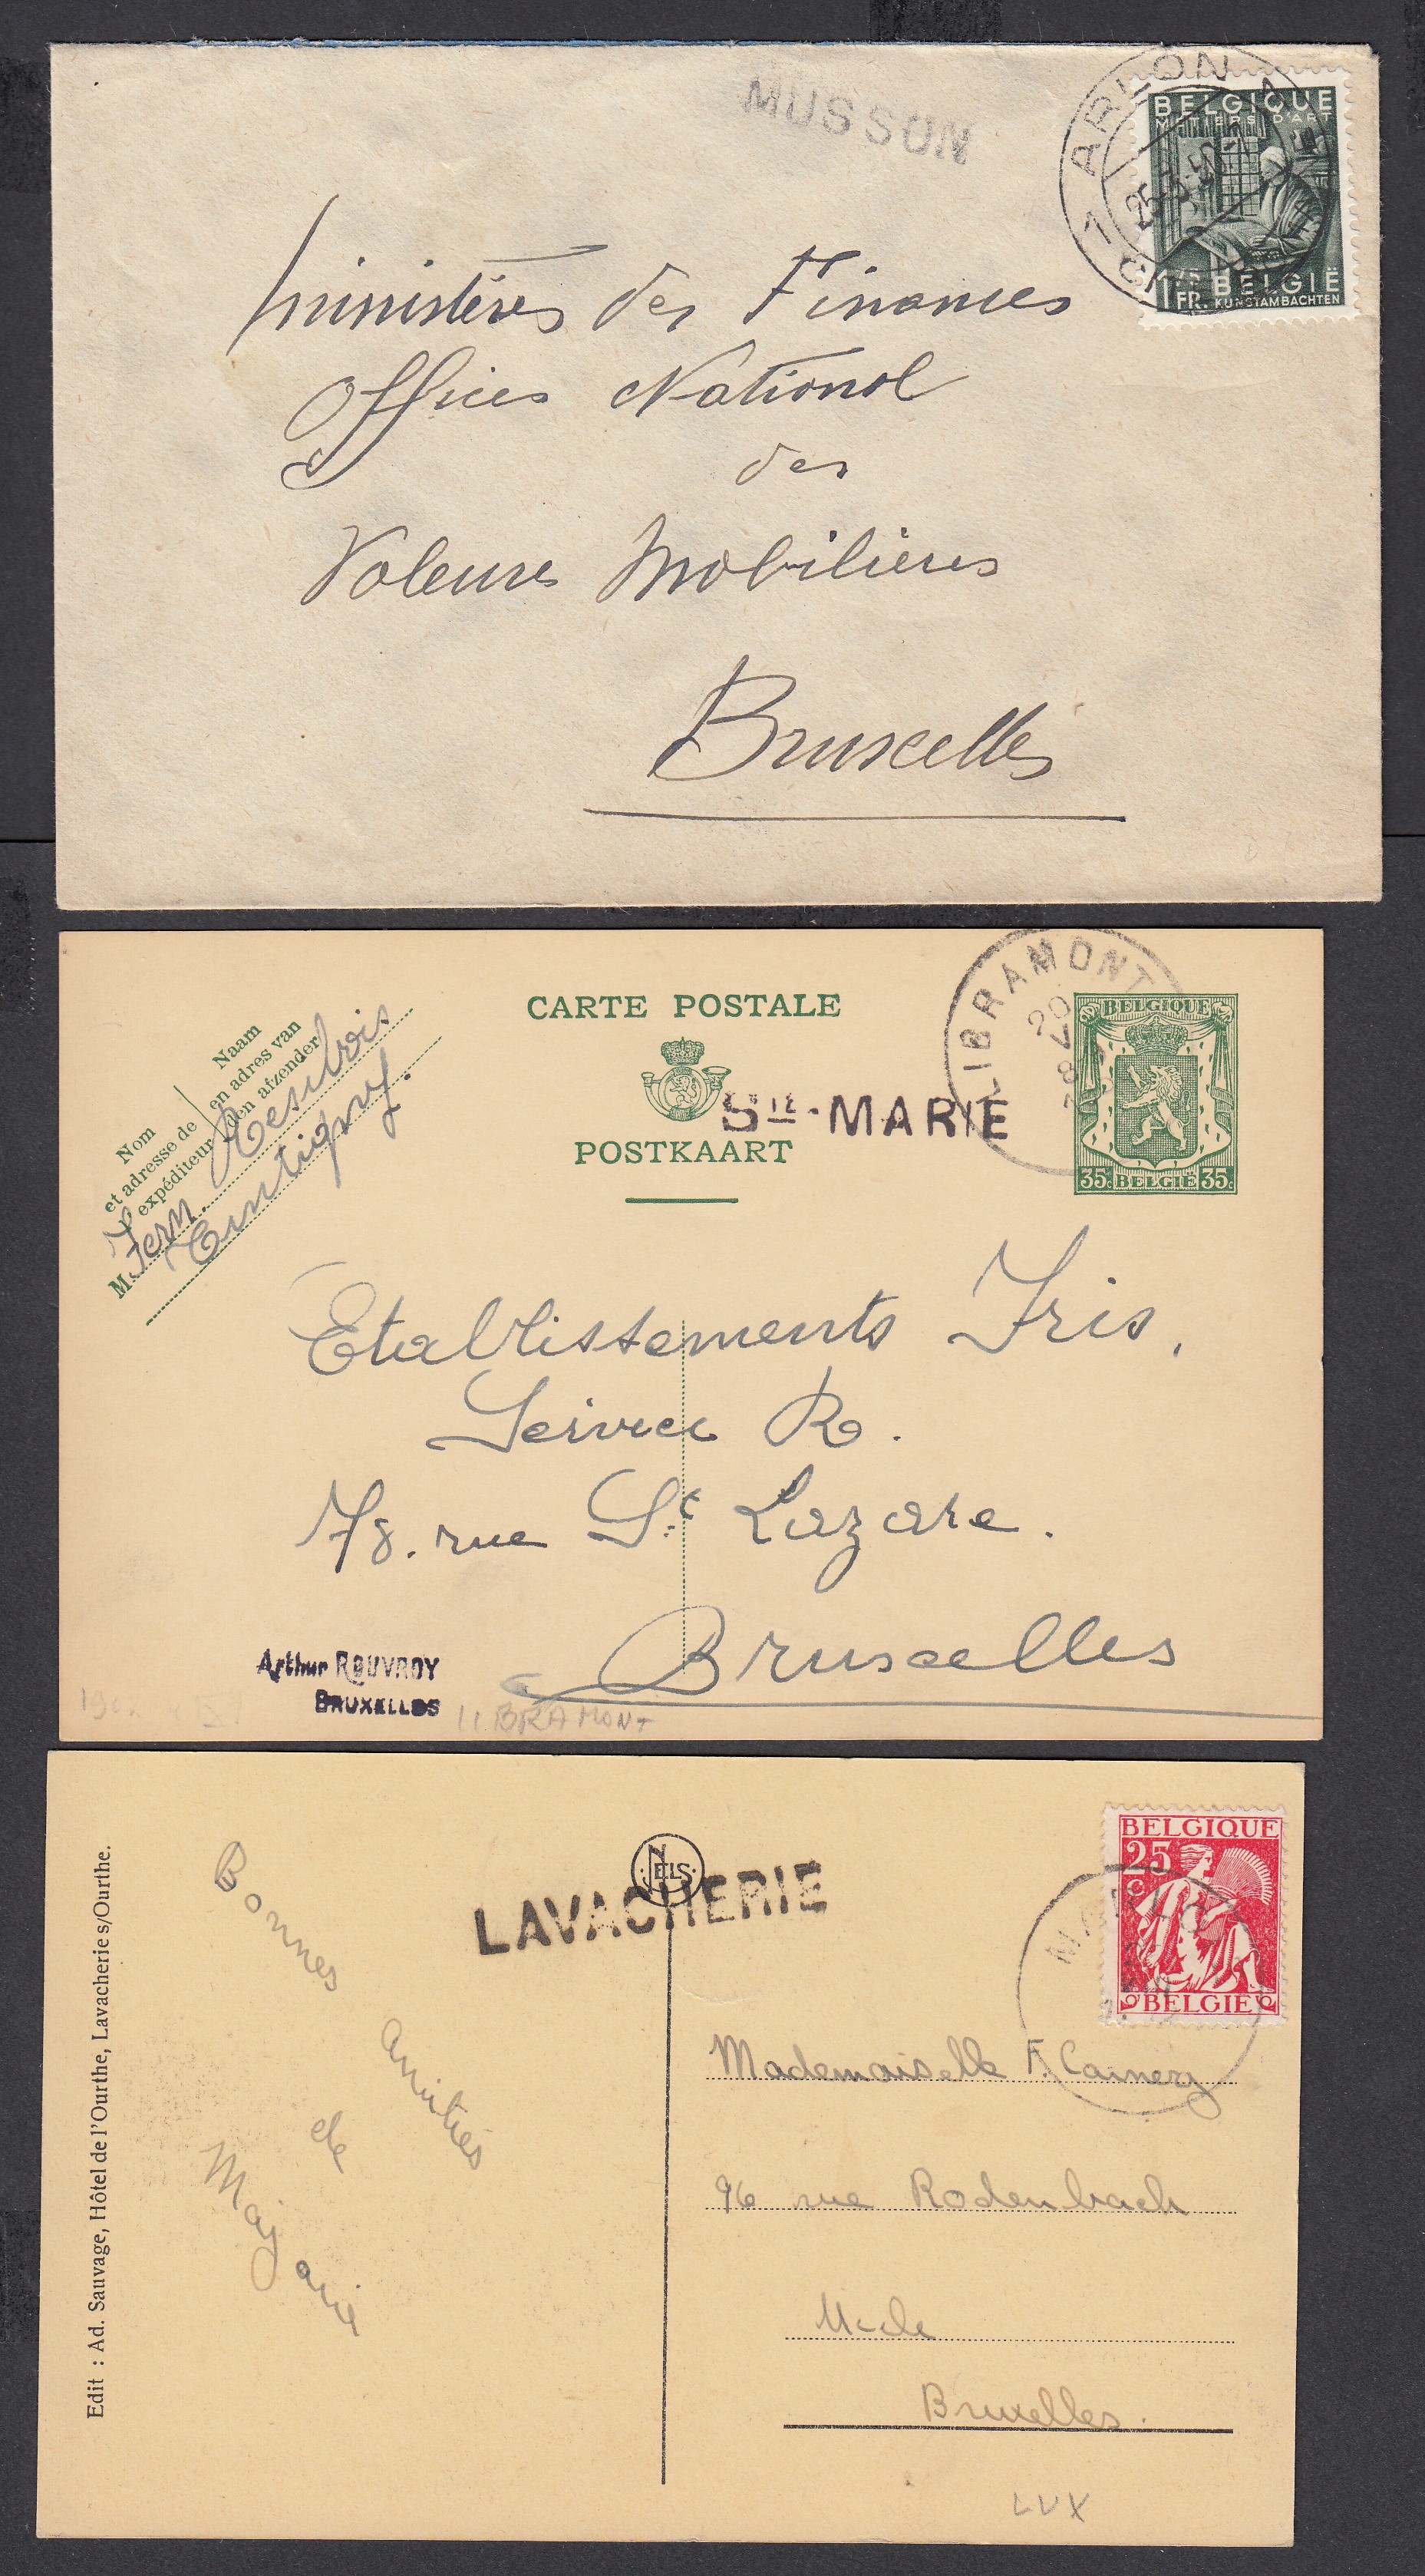 MUSSON
ARLON
BELGIQUE
METIERS D'ART
1 75 FR. BELGIË
KUNSTAMBACHTEN
Ministères des Finances
Offices National
des
Valeurs Mobilières
Bruxelles
LIBRAMONT
CARTE POSTALE
POSTKAART
Sте-MARIE
BELGIQUE
35c BELGIË 35c
Nom
et adresse de
l'expéditeur
Naam
en adres van
den afzender
M. Fern.
Etablissements Iris.
Service R.
78. rue St Lazare.
Bruxelles
Arthur ROUVROY
BRUXELLES
LIBRAMONT
NELS
LAVACHERIE
BELGIQUE
25
c
BELGIE
Edit : Ad. Sauvage, Hôtel de l'Ourthe, Lavacherie s/Ourthe.
Bonnes
amitiés
de
Mademoiselle F.
96 rue Rodenbach
Uccle
Bruxelles.
LUX